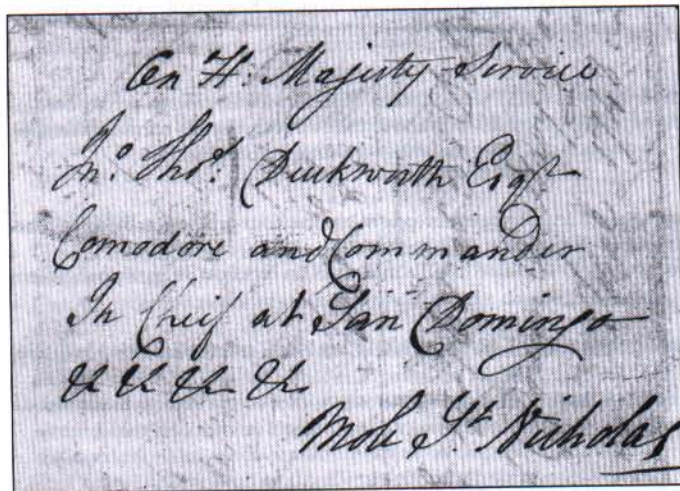 On H: Majesty Service
Jnº Thoˢ. Duckworth Esqr
Comodore and Commander
In Cheif at San Domingo
&c &c &c &c
Mole St. Nicholas